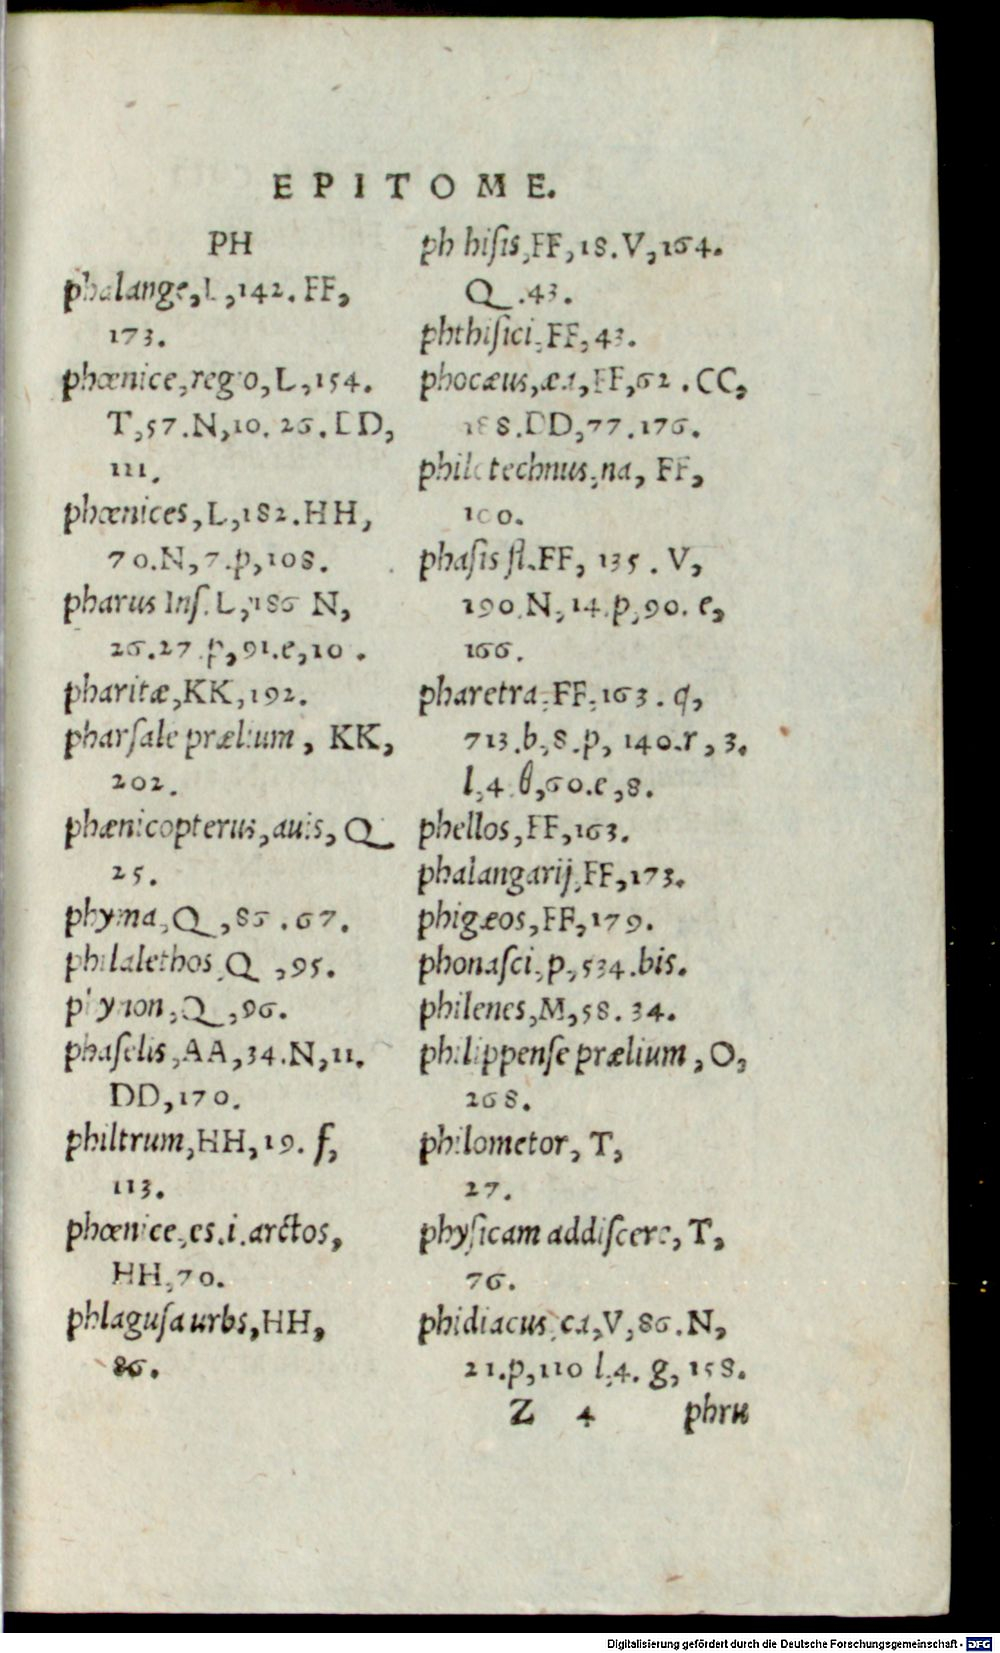 EPITOME.
PH
phalange, L, 142. FF,
173.
phœnice, regio, L, 154.
T, 57. N, 10. 26. DD,
111.
phœnices, L, 182. HH,
70. N, 7. p, 108.
pharus Inſ. L, 186 N,
26. 27. p, 91. e, 10.
pharitæ, KK, 192.
pharſale prælium, KK,
202.
phænicopterus, auis, Q
25.
phyma, Q, 86. 67.
philalethos, Q, 95.
phynon, Q, 96.
phaſelis, AA, 34. N, 11.
DD, 170.
philtrum, HH, 19. f,
113.
phœnice, es. i. arctos,
HH, 70.
phlaguſa urbs, HH,
86.
phthiſis, FF, 18. V, 164.
Q. 43.
phthiſici, FF, 43.
phocæus, æa, FF, 62. CC,
188. DD, 77. 176.
philotechnus, na, FF,
100.
phaſis fl. FF, 135. V,
190. N, 14. p, 90. e,
166.
pharetra, FF, 163. q,
713. b, 8. p, 140. r, 3.
l, 4. θ, 60. e, 8.
phellos, FF, 163.
phalangarij, FF, 173.
phigæos, FF, 179.
phonaſci, p, 534. bis.
philenes, M, 58. 34.
philippenſe prælium, O,
268.
philometor, T,
27.
phyſicam addiſcere, T,
76.
phidiacus, ca, V, 86. N,
21. p, 110 l, 4. g, 158.
Z 4 phru
Digitalisierung gefördert durch die Deutsche Forschungsgemeinschaft - DFG